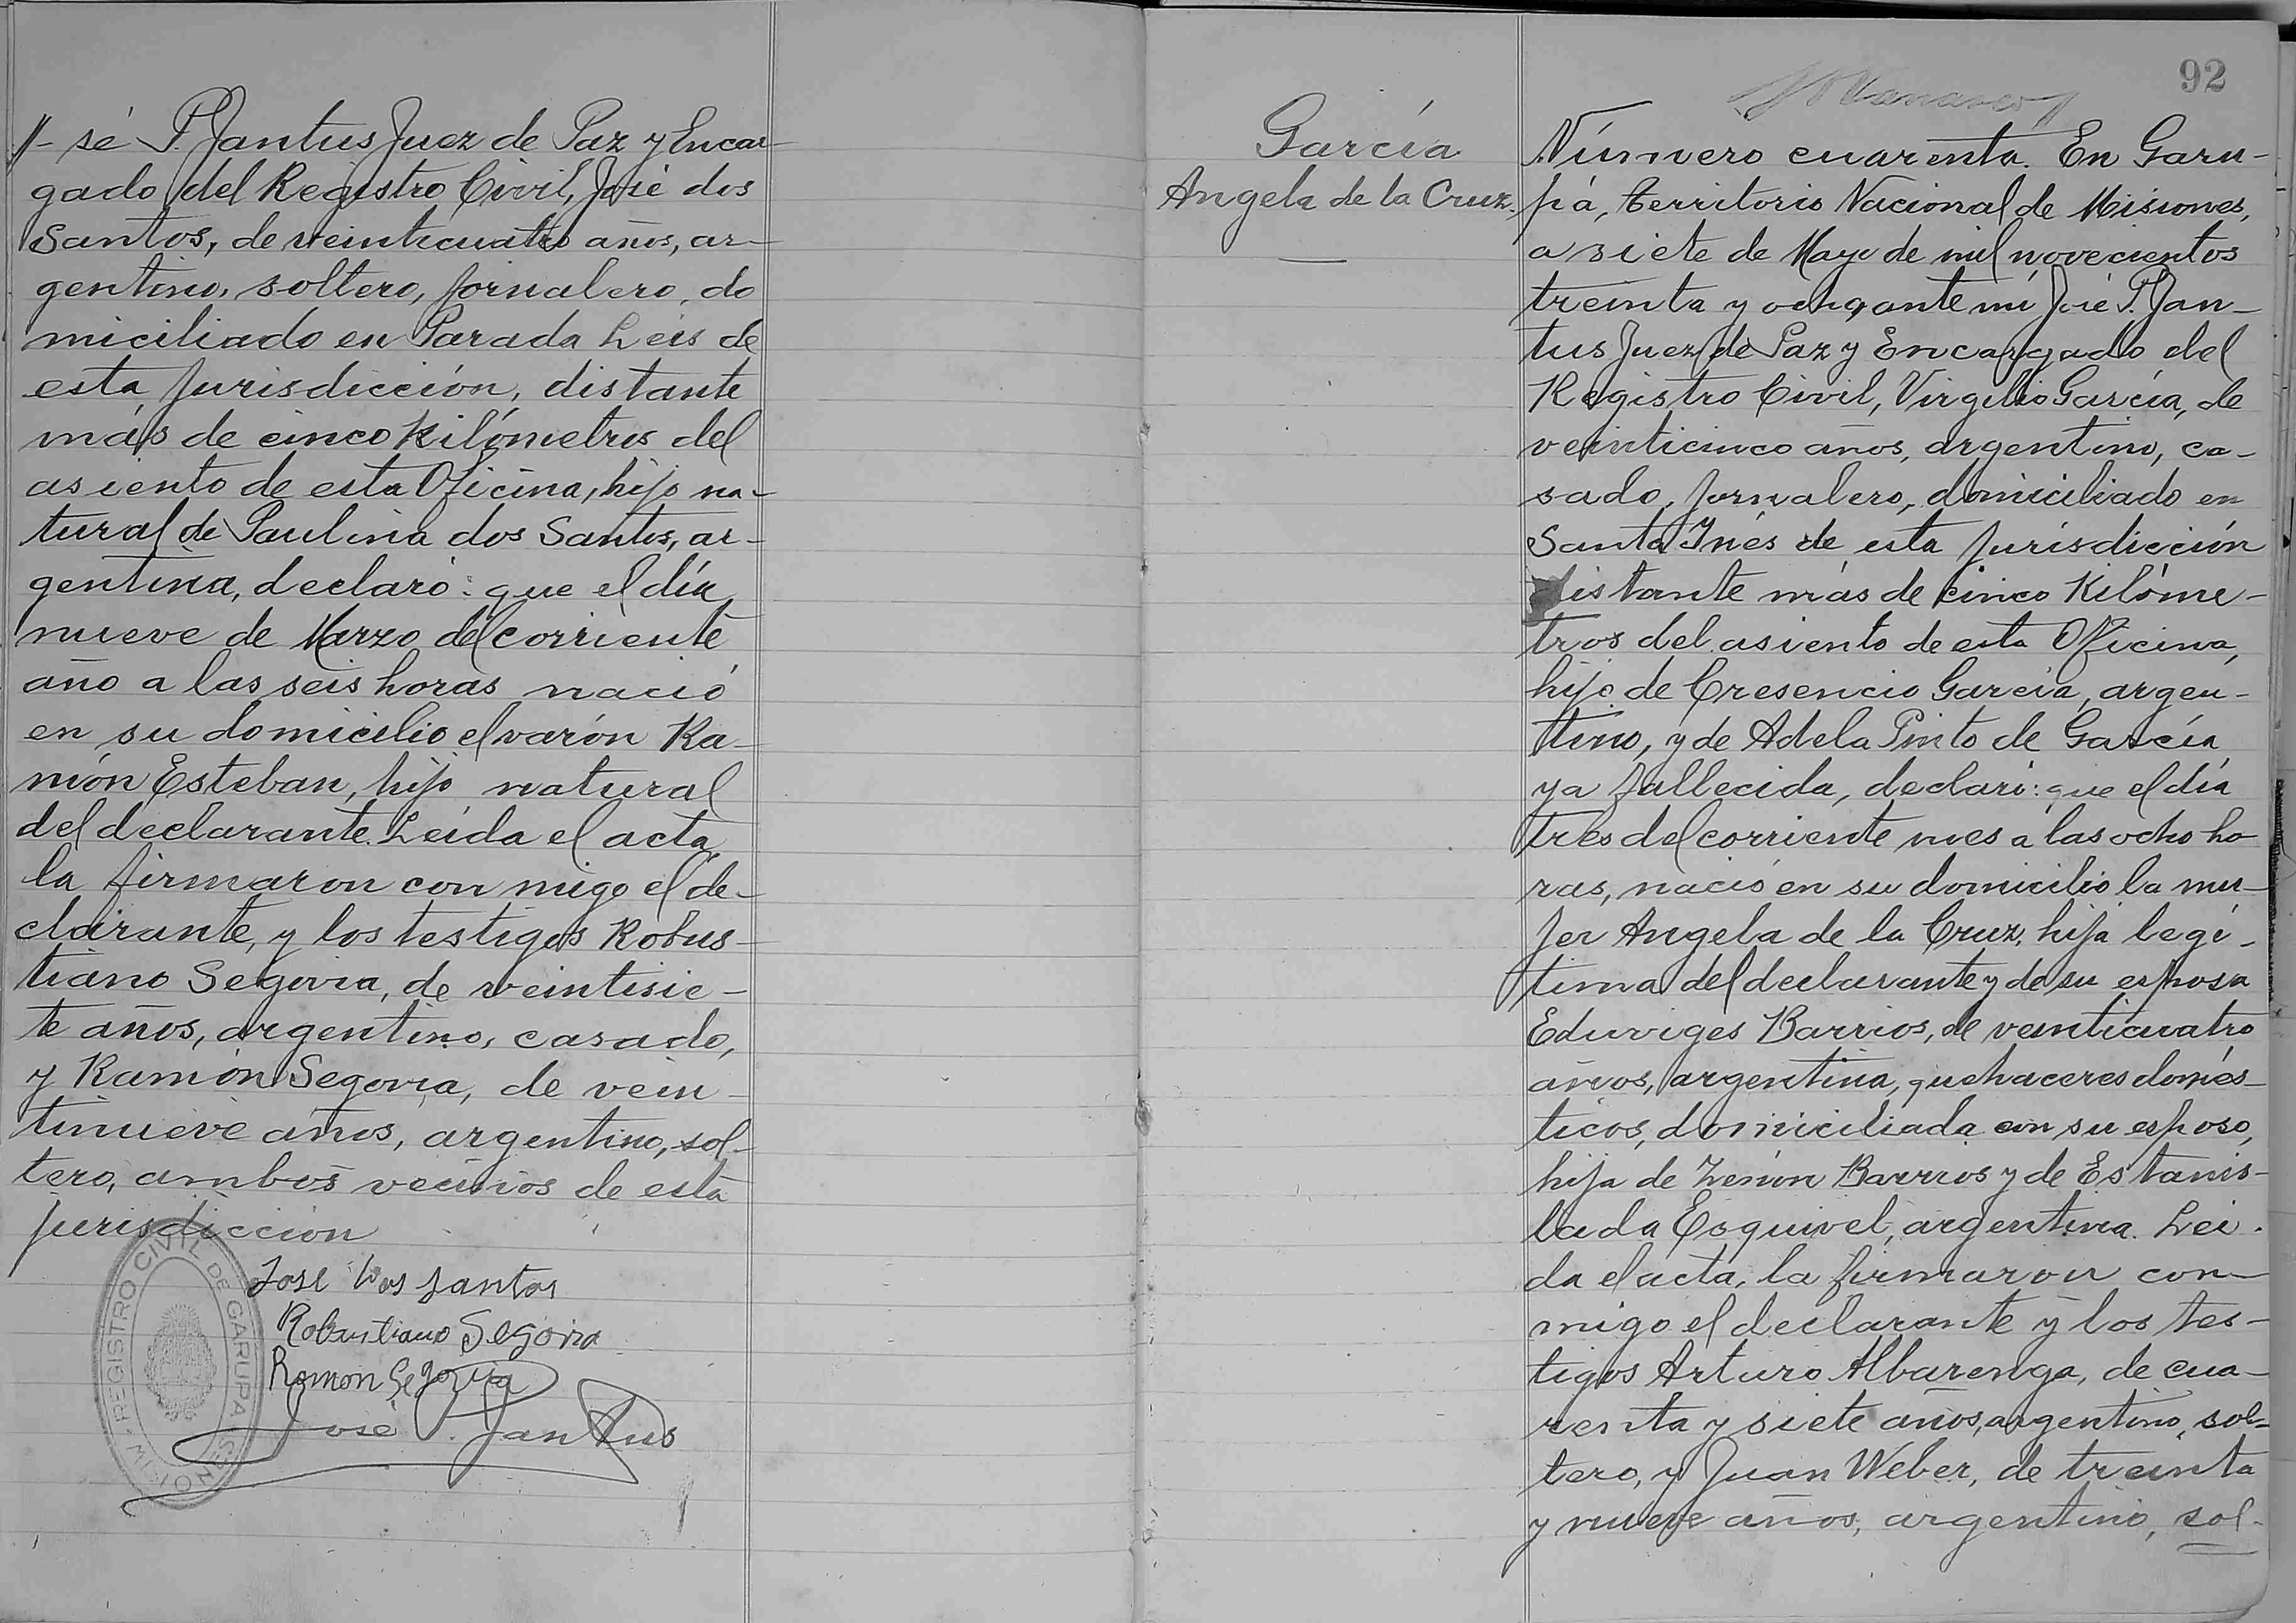 //- sé P. Jantus Juez de Paz y Encar-
gado del Registro Civil, José dos
Santos, de veinticuatro años, ar-
gentino, soltero, jornalero, do
miciliado en Parada Leis de
esta Jurisdicción, distante
más de cinco Kilómetros del
asiento de esta Oficina, hijo na-
tural de Paulina dos Santos, ar-
gentina, declaró: que el día
nueve de Marzo del corriente
año a las seis horas nació
en su domicilio el varón Ra-
món Esteban, hijo natural
del declarante. Leida el acta
la firmaron con migo el de-
clarante, y los testigos Robus-
tiano Segovia, de veintisie-
te años, argentino, casado,
y Ramón Segovia, de vein-
tinueve años, argentino, sol-
tero, ambos vecinos de esta
jurisdicción
José Dos Santos
Robustiano Segovia
Ramon Segovia
José P. Jantus
REGISTRO CIVIL DE GARUPA - MISIONES
92
García
Angela de la Cruz.
Número cuarenta. En Garu-
pá, territorio Nacional de Misiones,
a siete de Mayo de mil novecientos
treinta y ocho, ante mi José P. Jan-
tus Juez de Paz y Encargado del
Registro Civil, Virgilio García, de
veinticinco años, argentino, ca-
sado, jornalero, domiciliado en
Santa Inés de esta Jurisdicción
distante más de cinco Kilóme-
tros del asiento de esta Oficina,
hijo de Cresencio García, argen-
tino, y de Adela Pinto de García
ya fallecida, declaró: que el día
tres del corriente mes a las ocho ho
ras, nació en su domicilio la mu-
jer Angela de la Cruz, hija legi-
tima del declarante y de su esposa
Eduviges Barrios, de veinticuatro
años, argentina, quehaceres domés-
ticos, domiciliada con su esposo,
hija de Zenón Barrios y de Estanis-
lada Esquivel, argentina. Lei-
da el acta, la firmaron con-
migo el declarante y los tes-
tigos Arturo Albarenga, de cua-
renta y siete años, argentino, sol-
tero, y Juan Weber, de treinta
y nueve años, argentino, sol-